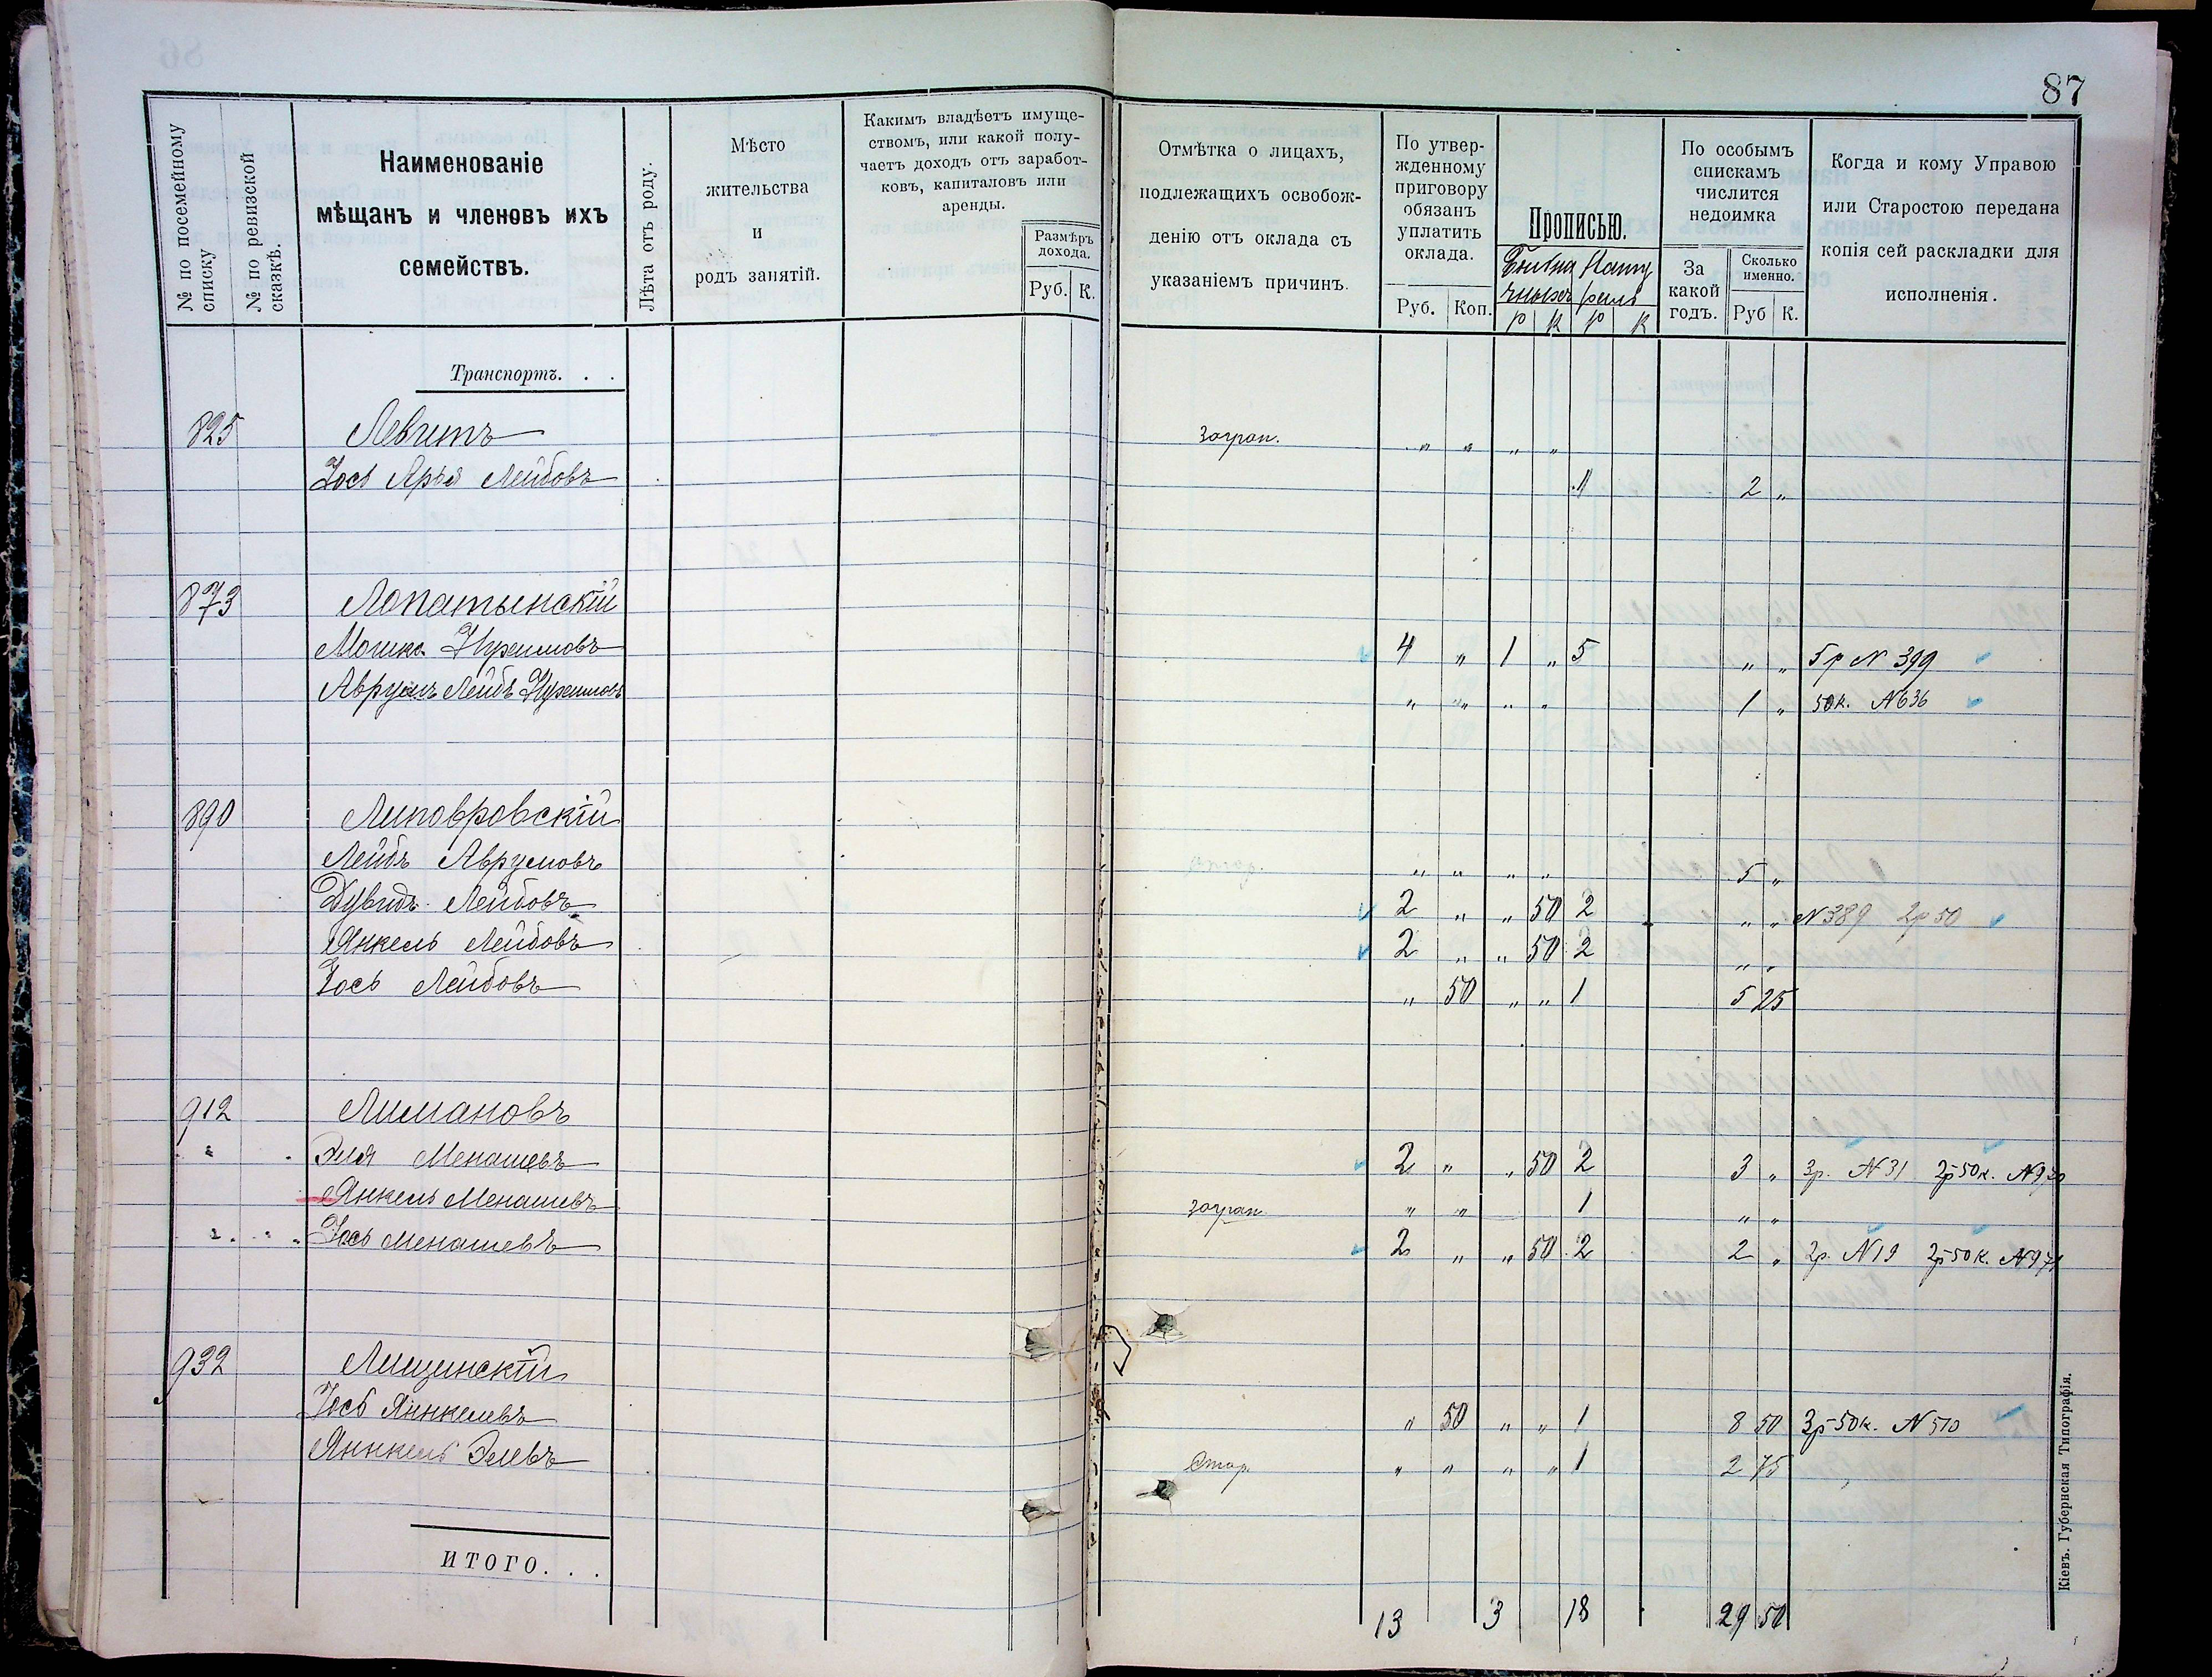 87
№ по посемейному списку
№ по ревизской сказкѣ.
Наименованіе
мѣщанъ и членовъ ихъ
семействъ.
Лѣта отъ роду.
Мѣсто
жительства
и
родъ занятій.
Какимъ владѣетъ имуще-
ствомъ, или какой полу-
чаетъ доходъ отъ заработ-
ковъ, капиталовъ или
аренды.
Размѣръ
дохода.
Руб. К.
Отмѣтка о лицахъ,
подлежащихъ освобож-
денію отъ оклада съ
указаніемъ причинъ.
По утвер-
жденному
приговору
обязанъ
уплатить
оклада.
Руб. Коп.
Прописью.
р к р к
По особымъ
спискамъ
числится
недоимка
За
какой
годъ.
Сколько
именно.
Руб К.
Когда и кому Управою
или Старостою передана
копія сей раскладки для
исполненія.
Транспортъ. . .
825 Левитъ загран. „ „ „ „
Іось Арья Лейбовъ 1 2 „
873 Лопатынскій
Мошко 4 „ 1 „ 5 „ „ 5 р N 399
Аврумъ Лейбъ „ „ „ „ 1 „ 50 к. N 636
890 Липовровскій
Лейбъ Аврумовъ „ „ „ „ 5 „
Дувидъ Лейбовъ 2 „ „ 50 2 „ „ N 389 2р 50
Янкель Лейбовъ 2 „ „ 50 2 „ „
Іось Лейбовъ „ 50 „ „ 1 5 25
912 Лимановъ
Эля Менашевъ 2 „ „ 50 2 3 „ 3р. N 31 2р 50к. N 970
Янкель Менашевъ загран „ „ 1 „ „
Іось Менашевъ 2 „ „ 50 2 2 „ 2р. N 19 2р 50 к. N 971
932 Лищинскій
Іось Янкелевъ „ 50 „ „ 1 8 50 3р 50к. N 510
Янкель Элевъ Стар. „ „ „ „ 1 2 75
ИТОГО. . .
13 3 18 29 50
Кіевъ. Губернская Типографія.